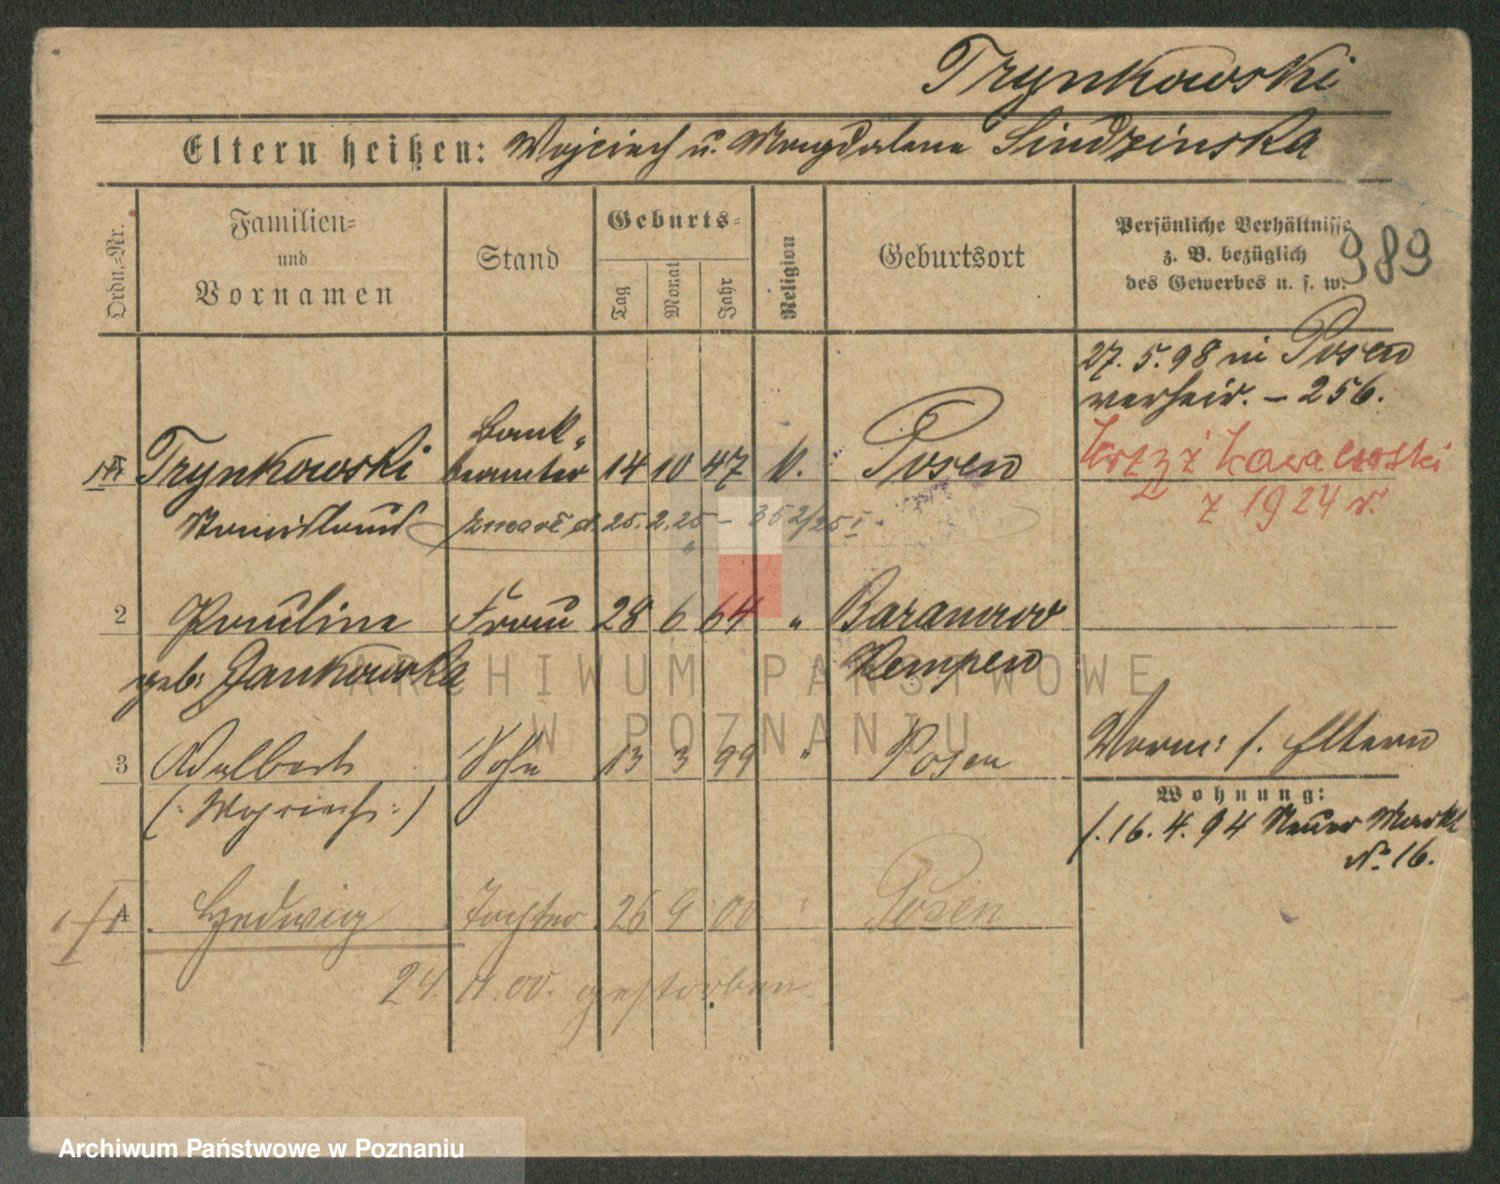 Trynkowski
Eltern heißen: Wojciech u. Magdalena Sindzinska
Ordn.-Nr.
Familien- und Vornamen
Stand
Geburts-
Tag
Monat
Jahr
Religion
Geburtsort
Persönliche Verhältnisse z. B. bezüglich des Gewerbes u. s. w.
989
27. 5. 98 in Posen
verheir. – 256.
Trynkowski Bank-
beamter 14 10 47 k. Posen
Krzyż Kawalerski
z 1924 r.
Stanislaus zmarł d. 25. 2. 25 – 352/25 I
2 Pauline Frau 28 6 64 " Baranow
geb: Jankowska Kempen
3 Adalbert Sohn 13 3 99 " Posen
(: Wojciech :)
Vorm: s. Eltern
Wohnung:
s. 16. 4. 94 Neuer Markt
No 16.
4 Hedwig Tochter 26 9 00 " Posen
24. 11. 00. gestorben.
ARCHIWUM PAŃSTWOWE
W POZNANIU
Archiwum Państwowe w Poznaniu